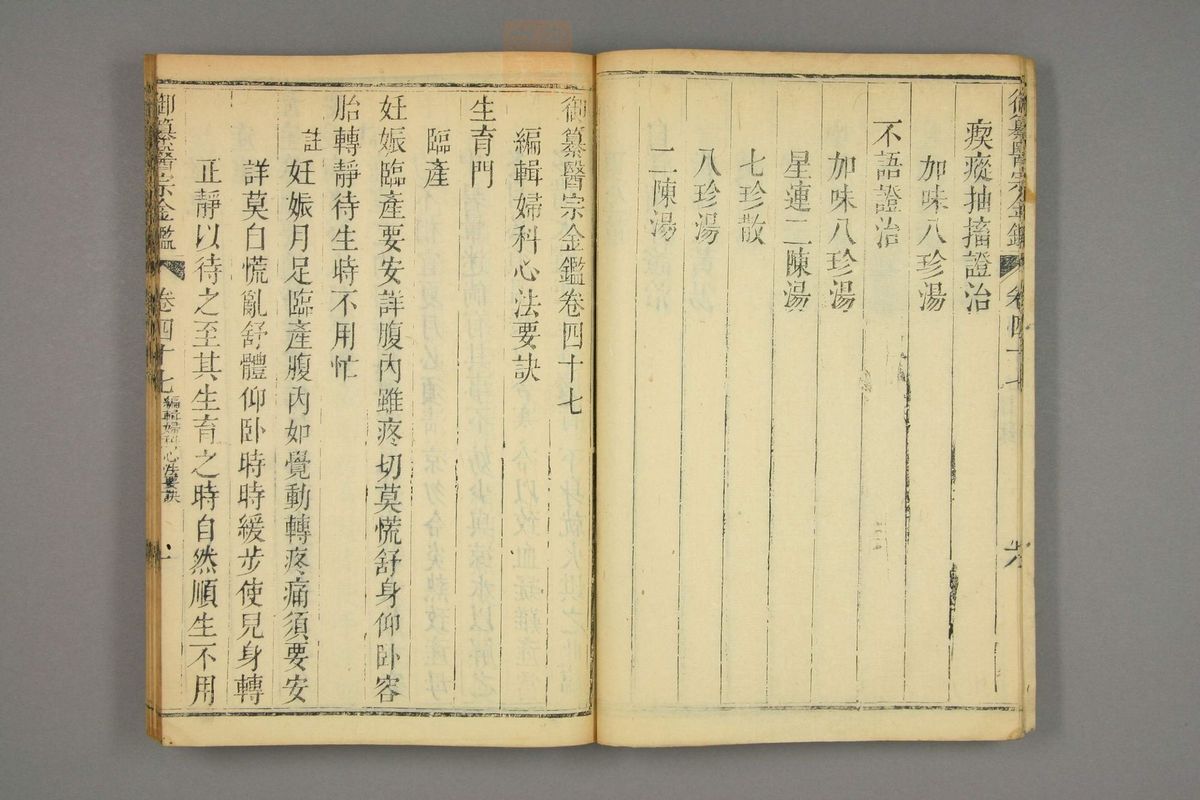 御纂醫宗金鑑 卷四十七 六
瘈瘲抽搐證治
加味八珍湯
不語證治
加味八珍湯
星連二陳湯
七珍散
八珍湯
二陳湯
御纂醫宗金鑑卷四十七
編輯婦科心法要訣
生育門
臨產
妊娠臨產要安詳腹內雖疼切莫慌舒身仰卧容
胎轉靜待生時不用忙
註 妊娠月足臨產腹內如覺動轉疼痛須要安
詳莫自慌亂舒體仰卧時時緩步使兒身轉
正靜以待之至其生育之時自然順生不用
御纂醫宗金鑑 卷四十七 編輯婦科心法要訣 一